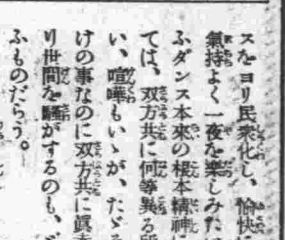 スをヨリ民衆化し、愉快に
氣持よく一夜を樂しみた
ふダンス本來の根本精神
ては、双方共に何等異る所
い、喧嘩もいゝが、たゞ
けの事なのに双方共に眞
り世間を騷がするのも、
ふものだらう。